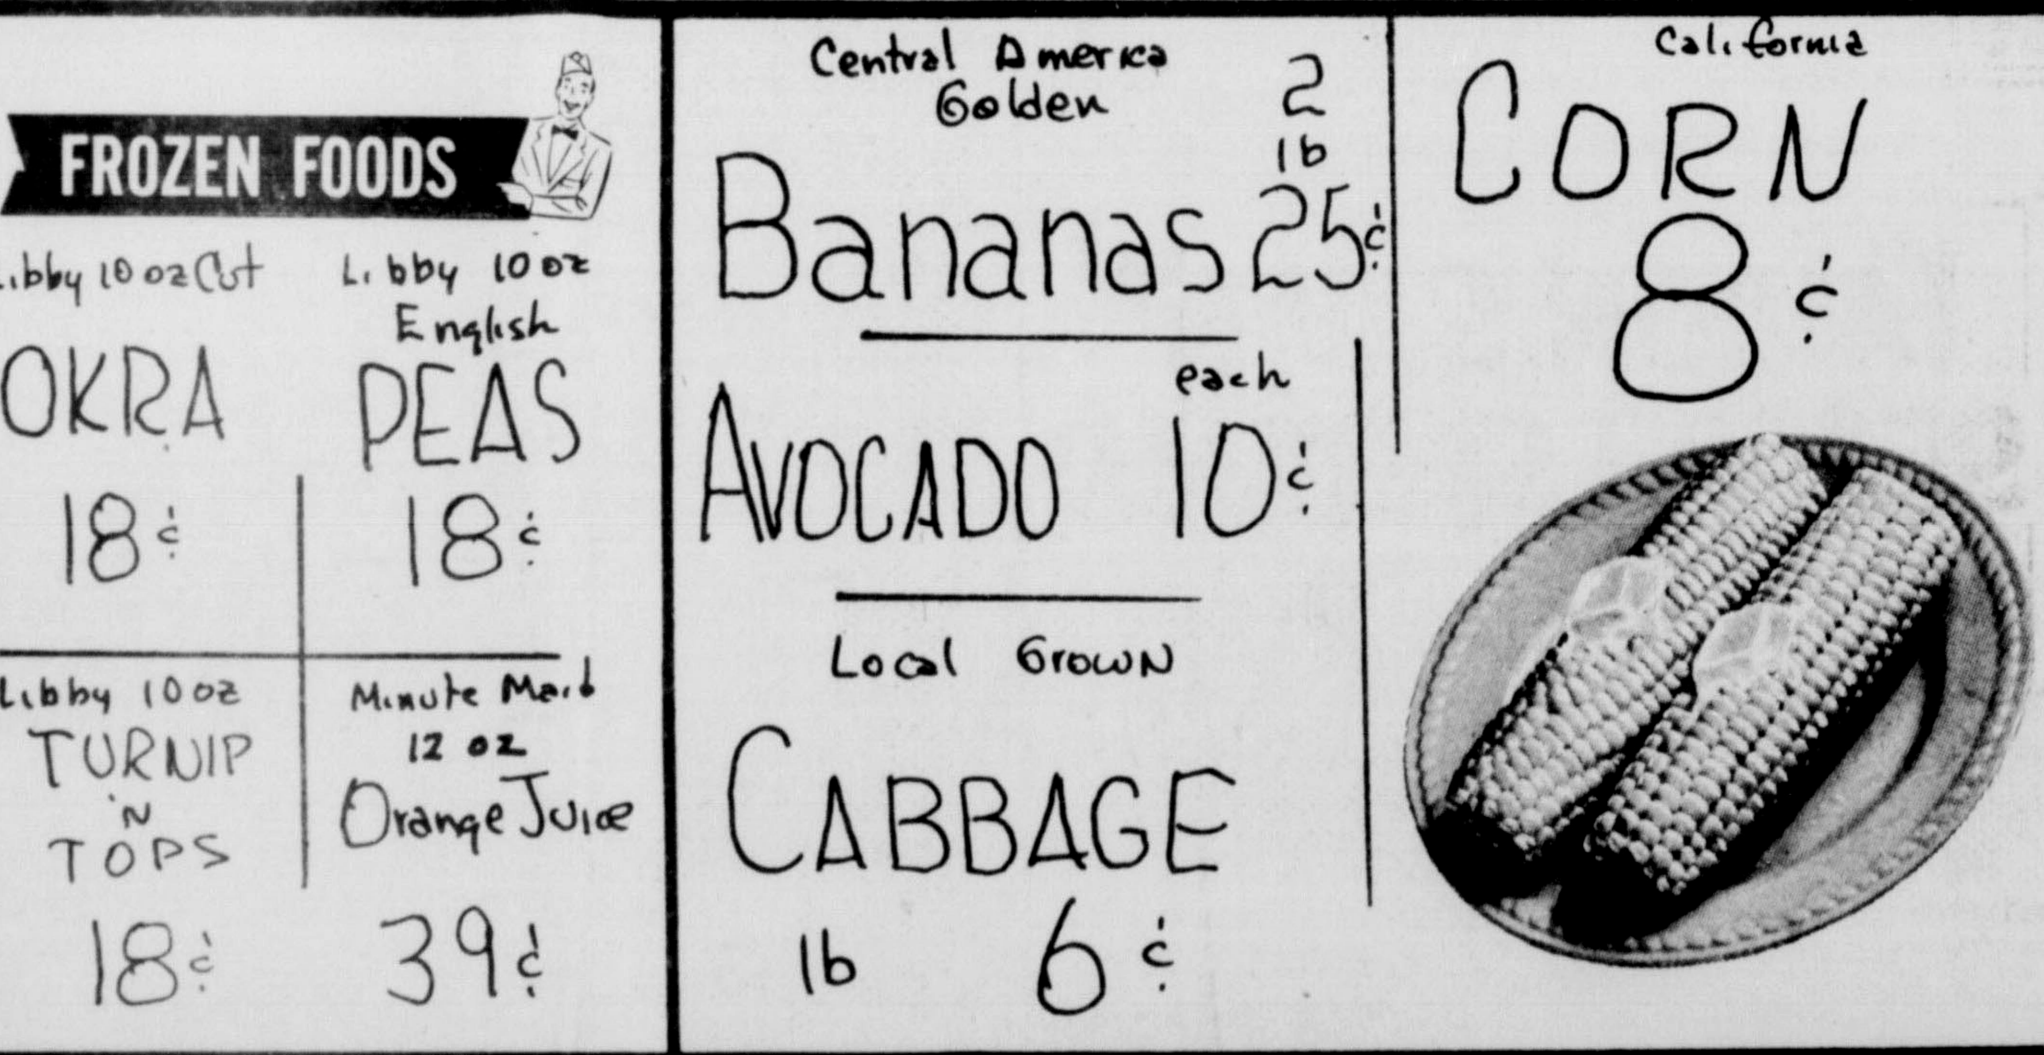 FROZEN FOODS
Libby 10 oz Cut
OKRA
18¢
Libby 10 oz
English
PEAS
18¢
Libby 10 oz
TURNIP
'N
TOPS
18¢
Minute Maid
12 oz
Orange Juice
39¢
Central America
Golden
Bananas
2
lb
25¢
each
AVOCADO 10¢
Local Grown
CABBAGE
lb 6¢
California
CORN
8¢